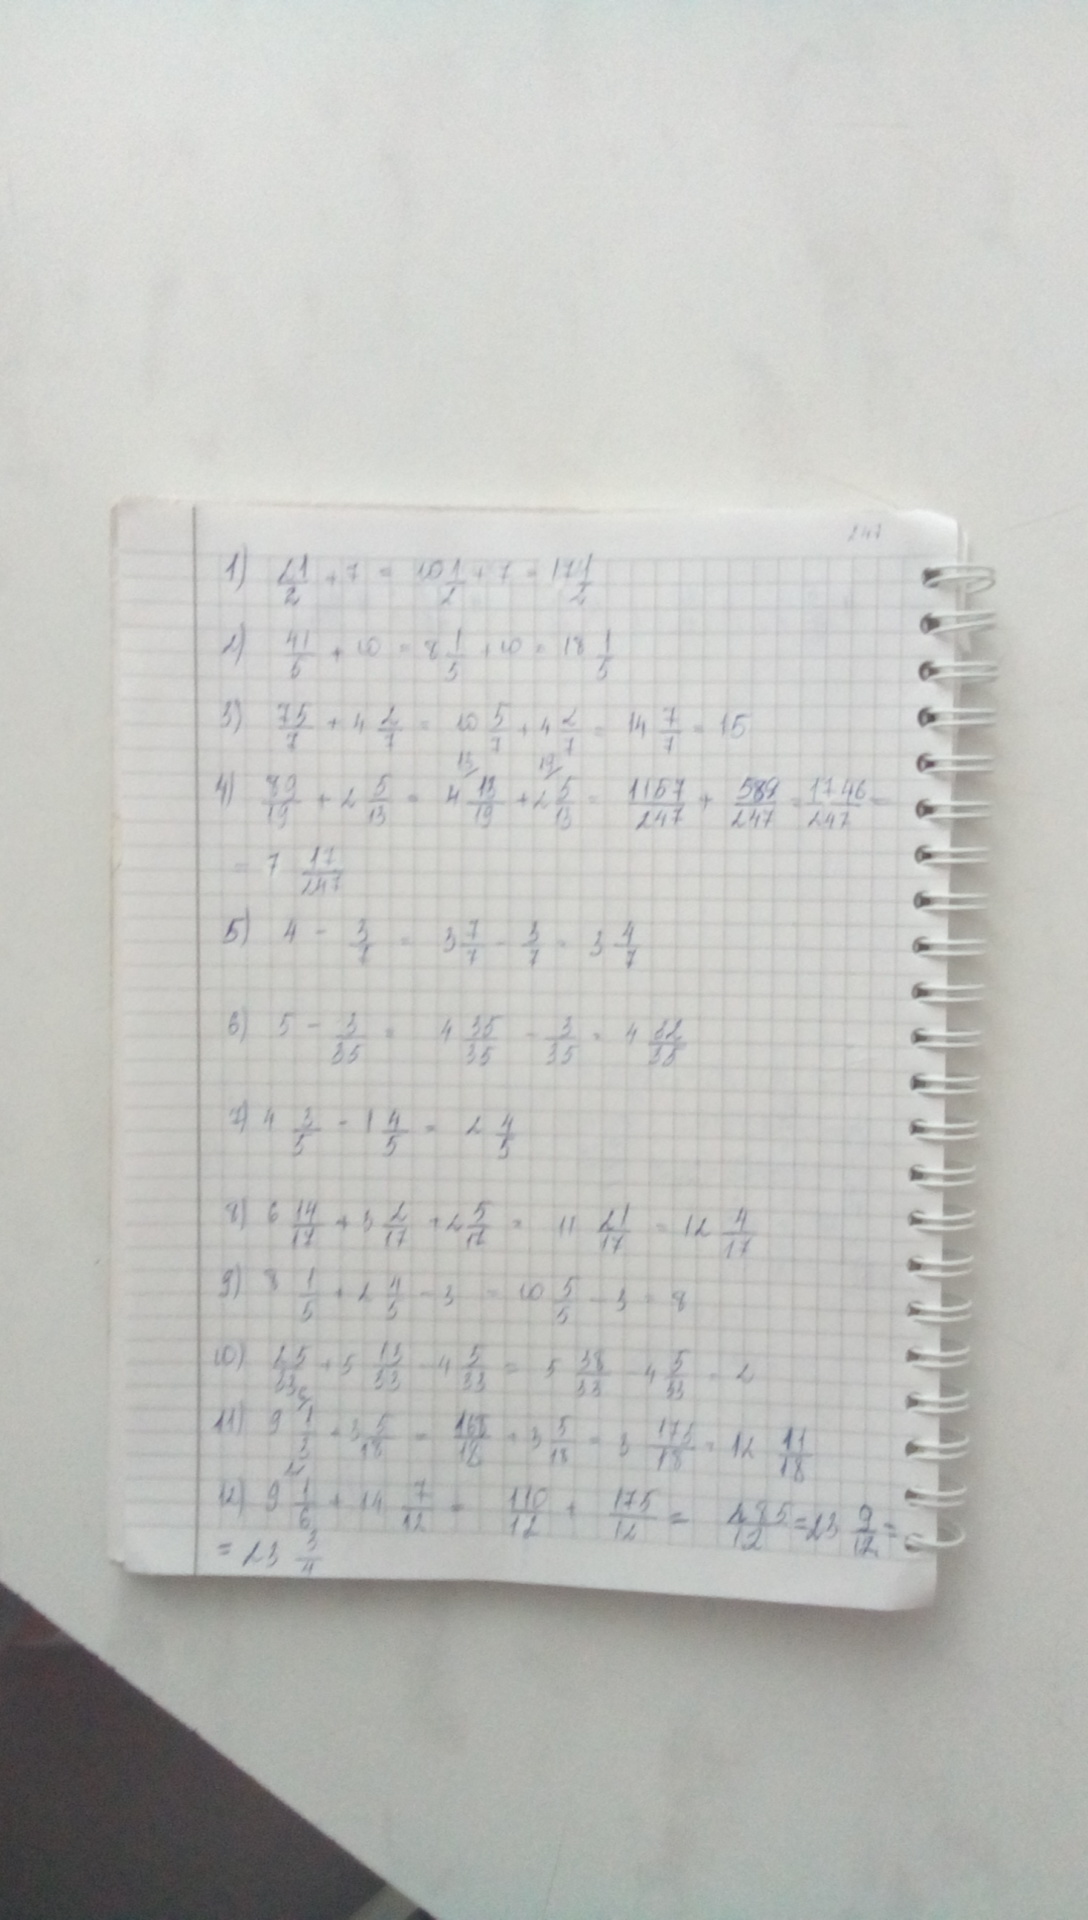 247
1) 21/2 + 7 = 10 1/2 + 7 = 17 1/2
2) 41/5 + 10 = 8 1/5 + 10 = 18 1/5
3) 75/7 + 4 2/7 = 10 5/7 + 4 2/7 = 14 7/7 = 15
4) 89/19 + 2 5/13 = 4 13/19 + 2 5/13 = 1157/247 + 589/247 = 1746/247 =
= 7 17/247
5) 4 - 3/7 = 3 7/7 - 3/7 = 3 4/7
6) 5 - 3/35 = 4 35/35 - 3/35 = 4 32/35
7) 4 3/5 - 1 4/5 = 2 4/5
8) 6 14/17 + 3 2/17 + 2 5/17 = 11 21/17 = 12 4/17
9) 8 1/5 + 2 4/5 - 3 = 10 5/5 - 3 = 8
10) 25/33 + 5 13/33 - 4 5/33 = 5 38/33 - 4 5/33 = 2
11) 9 1/3 + 3 5/18 = 168/18 + 3 5/18 = 3 173/18 = 12 11/18
12) 9 1/6 + 14 7/12 = 110/12 + 175/12 = 285/12 = 23 9/12 =
= 23 3/4